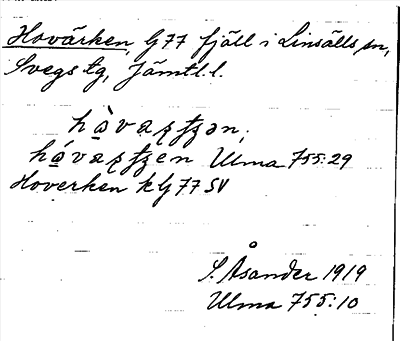 Hovärken, G77 fjäll i Linsälls sn,
Svegs tg, Jämtl. l.
Ulma 755:29
Hoverken k G 77 SV
S. Åsander 1919
Ulma 755:10